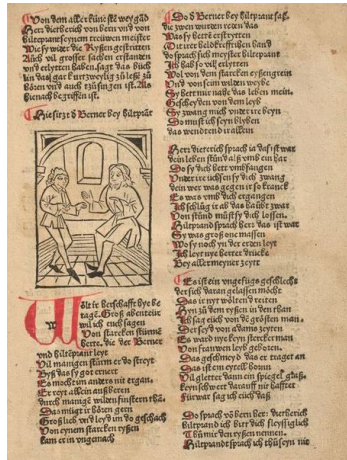 Von dem aller künsten wegẽ
Herr dietherich von bern vnd von
hiltprant seynem trewen meister
Wie sy wider die Ryßen gestritten
Auch vil grosser sachen erstanden
vnd erlytten haben. sagt das büch
lin das gar kurtzweylig zů leßẽ zů
hörẽ vnd auch zů singen ist. Als
hienach begriffen ist.
Hie sitzt d Berner bey hiltprãt
Wölt ir herschafft hye be
tagẽ. Groß abenteür
wil ich euch sagen
Von starcken stürmẽ
herte. die der Berner
vnd hiltprant leyt
Vil mangen stürm er do streyt
Byß das sy got ernert
Es mocht im anders nit ergan.
Er reyt allein auß bern
durch mange wilden finstern than.
Das mügt ir hören gern
Groß lieb vnd leyd im do geschach
Von eynem starcken ryßen
kam er in vngemach
Do d Berner bey hiltprant saß
die zwen wurden reden das
Was sy hertte erstrytten
do sprach sich meyster hiltprant
Ich hab so vil erlytten
Wol von dem starcken ryßen grein
Vnd von seim wilden weybe
Sy hett mir nahe das leben mein.
Gescheyden von dem leyb
Sy zwang mich vnder ir beyn
So můst ich seyn blyben
das wendtend ir allein
Herr dieterich sprach ia das ist war
dein leben stůnd als vmb ein har
So sy dich hett vmbfangen
Vnder ir üchsen sy dich zwang
dein wer was gegen ir so kranck
Es was vmb dich ergangen
Ich schlůg ir ab das haubt zwar
Von stund můst sy dich lossen.
Hiltprand sprach herr das ist war
Sy was groß one massen
Wo sy noch yn der erden leyt
Ich leyt nye herter drücke
Bey aller meyner zeyt
Es ist ein vngefügs geschlecht
der sich daran gelassen möcht
Das ir nyt wölten dreiten
Ich sag euch von dẽ grösten man.
Der sey von adams zeyten
Es ward nye kyn stercker man
Von frawen leyb geboren.
Das geschmeyd das er traget an
Das ist eim eyttel horn
Vil gletter dann ein spiegel glaß.
keyn schwert darauff nie hafftet
Für war sag ich euch daß
Do sprach võ bern her dietherich
hiltprand ich bitt dich fleyssiglich
Thů mir den ryßen nennen.
Hiltprandt sprach ich thů seyn nit